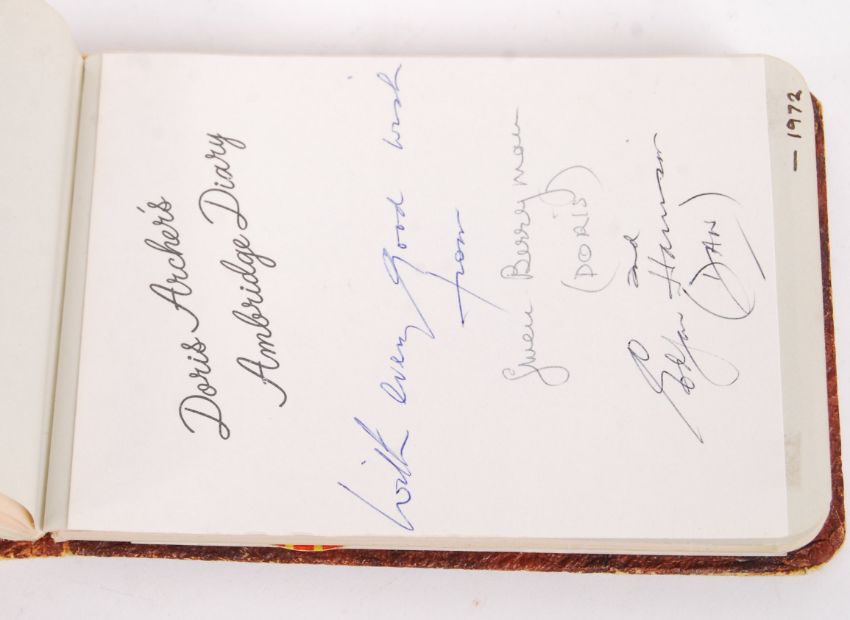 Doris Archer's
Ambridge Diary
With every good wish
from
Gwen Berryman
(DORIS)
and
Edgar Harrison
(DAN)
— 1972